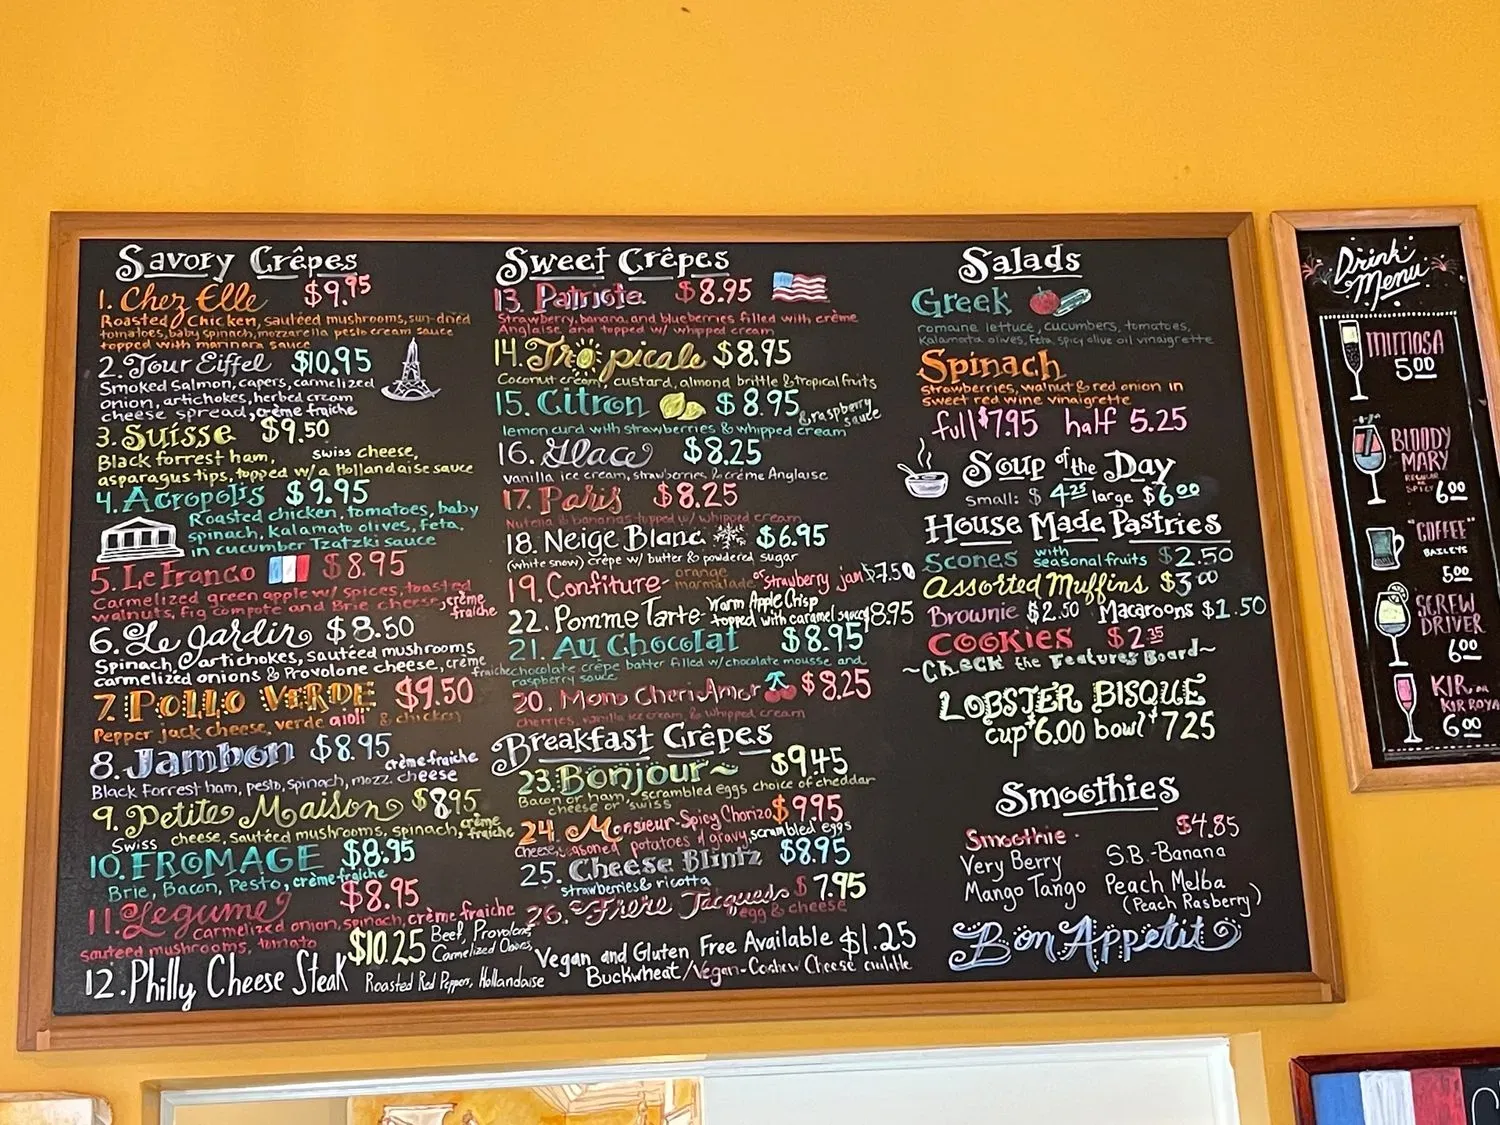 Savory Crêpes
1. Chez Elle $9.95
Roasted Chicken, sautéed mushrooms, sun-dried
tomatoes, baby spinach, mozzarella pesto cream sauce
topped with marinara sauce
2. Tour Eiffel $10.95
Smoked Salmon, capers, carmelized
onion, artichokes, herbed cream
cheese spread, crème fraîche
3. Suisse $9.50
Black forrest ham, swiss cheese,
asparagus tips, topped w/a Hollandaise sauce
4. Acropolis $9.95
Roasted chicken, tomatoes, baby
spinach, Kalamato olives, feta,
in cucumber Tzatzki sauce
5. Le Franco $8.95
Carmelized green apple w/ spices, toasted
walnuts, fig compote and Brie cheese, crème
fraîche
6. Le Jardin $8.50
Spinach, artichokes, sautéed mushrooms
carmelized onions & Provolone cheese, crème
fraîche
7. Pollo Verde $9.50
Pepper jack cheese, verde aioli & chicken
8. Jambon $8.95
crème fraîche
Black Forrest ham, pesto, spinach, mozz. cheese
9. Petite Maison $8.95
Swiss cheese, sautéed mushrooms, spinach, crème
fraîche
10. FROMAGE $8.95
Brie, Bacon, Pesto, crème fraîche
11. Legume $8.95
carmelized onion, spinach, crème fraîche
sautéed mushrooms, tomato
12. Philly Cheese Steak $10.25 Beef, Provolone,
Carmelized Onions,
Roasted Red Pepper, Hollandaise
Sweet Crêpes
13. Patriote $8.95
Strawberry, banana, and blueberries filled with crème
Anglaise and topped w/ whipped cream
14. Tropicale $8.95
Coconut cream, custard, almond brittle & tropical fruits
15. Citron $8.95
lemon curd with strawberries & whipped cream & raspberry
sauce
16. Glace $8.25
vanilla ice cream, strawberries, & crème Anglaise
17. Paris $8.25
Nutella & bananas topped w/ whipped cream
18. Neige Blanc $6.95
(white snow) crêpe w/ butter & powdered sugar
19. Confiture - orange
marmalade or strawberry jam $7.50
22. Pomme Tarte - Warm Apple Crisp
topped with caramel sauce $8.95
21. Au Chocolat $8.95
chocolate crêpe batter filled w/ chocolate mousse and
raspberry sauce
20. Mon Cheri Amor $8.25
cherries, vanilla ice cream & whipped cream
Breakfast Crêpes
23. Bonjour ~ $9.45
Bacon or ham, scrambled eggs choice of cheddar
cheese or swiss
24. Monsieur - Spicy Chorizo $9.95
Cheese, seasoned potatoes & gravy, scrambled eggs
25. Cheese Blintz $8.95
strawberries & ricotta
26. Frère Jacques $7.95
egg & cheese
Vegan and Gluten Free Available $1.25
Buckwheat/Vegan-Cashew Cheese available
Salads
Greek
romaine lettuce, cucumbers, tomatoes,
Kalamata olives, feta, spicy olive oil vinaigrette
Spinach
strawberries, walnut & red onion in
sweet red wine vinaigrette
full $7.95 half 5.25
Soup of the Day
small: $4.25 large $6.00
House Made Pastries
Scones with
seasonal fruits $2.50
Assorted Muffins $3.00
Brownie $2.50 Macaroons $1.50
COOKIES $2.35
~Check the Features Board~
LOBSTER BISQUE
cup $6.00 bowl $7.25
Smoothies
Smoothie. $4.85
Very Berry S.B.-Banana
Mango Tango Peach Melba
(Peach Rasberry)
Bon Appetit
Drink
Menu
MIMOSA
5.00
BLOODY
MARY
REGULAR
OR
SPICY 6.00
"COFFEE"
BAILEYS
5.00
SCREW
DRIVER
6.00
KIR OR
KIR ROYA
6.00